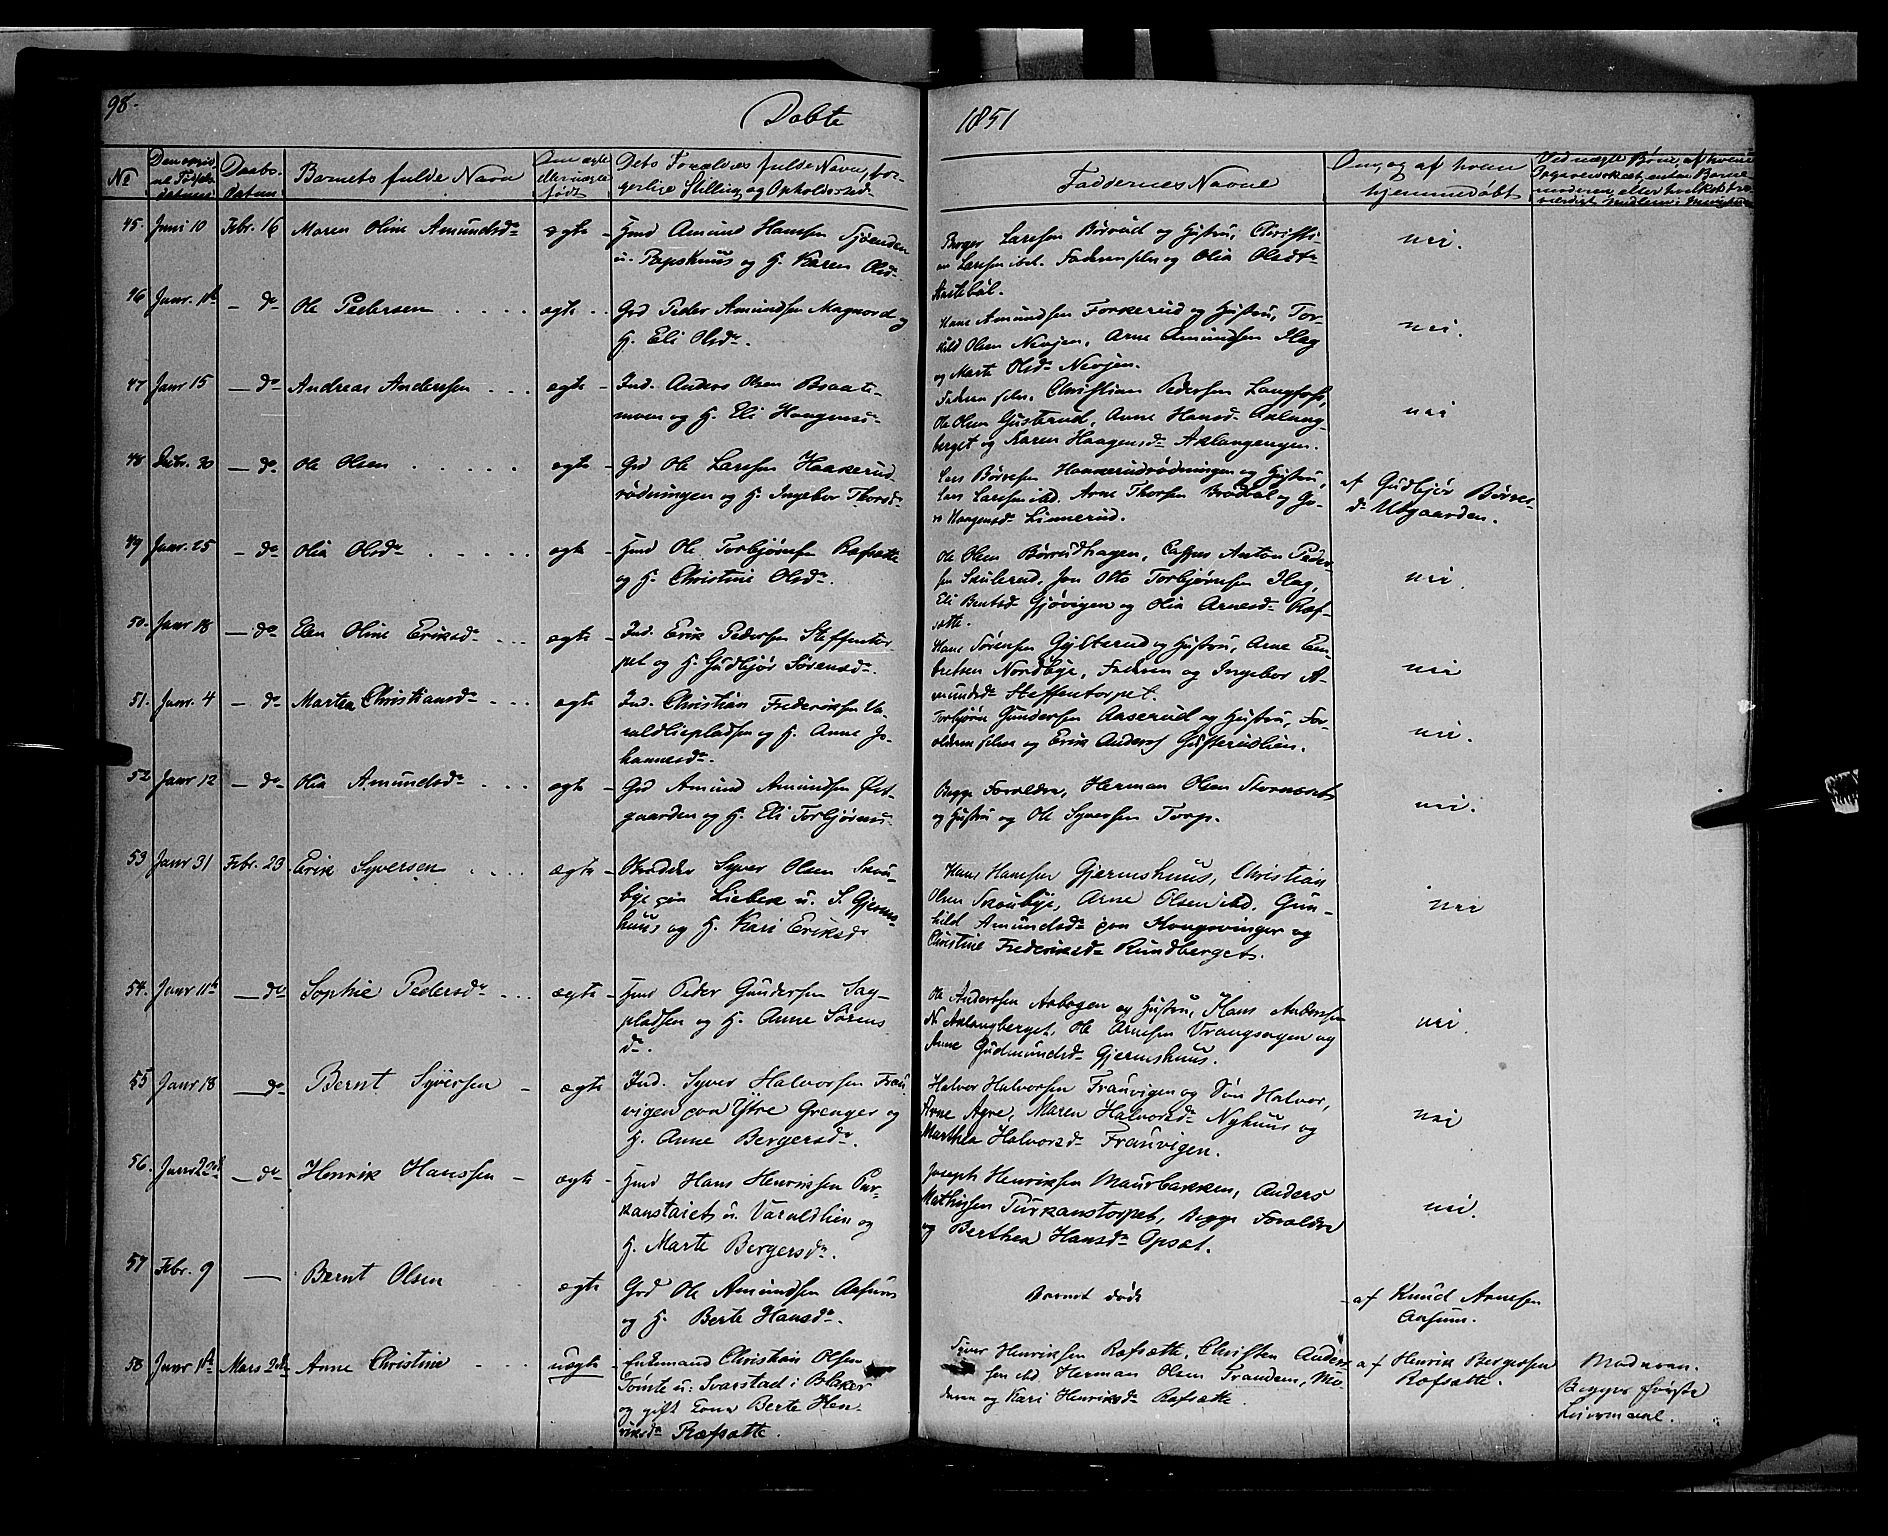 98.
Døbte
1851
No
Daabs-
Datum
Barnets fulde Navn
Dets Forældres fulde Navn, bor-
gerlige Stilling og Opholdssted
Faddernes Navne
Om, og af hvem
hjemmedøbt
45. Juni 10 Febr. 16 Maren Oline Amundsdr ægte - Hmd Amund Hansen
u. og H. Karen Olsdr
Berger Larssen Børrud og Hustru, Christi-
an Larssen ibid. Faderen selv og Olia Olsdtr
nei.
46 Janr. - do Ole Pedersen ægte Grd Peder Amundsen Magnord og
H. Eli Olsdr.
Hans Amundsen Forkerud og Hustru, Tor-
kild Olsen Nevjen, Arne Amundsen Hag
og Marte Olsdr Nevjen.
nei.
47 Janr 15 - do Andreas Anderssen ægte - Ind. Anders Olsen Braate-
moen og H. Eli
Faderen selv, Christian Pedersen Langfoss,
Ole Olsen Gusterud, Anne Hansdr Aklang-
berget og Karen Haagensdr Aklangengen.
nei
48 30 - do Ole Olsen ægte - Grd Ole Larssen Haakerud-
rødningen og H. Ingebor Thorsdr
Lars Børresen Haakerudrødningen og Hustru,
Lars Larssen ibid. Arne Thorsen og Gu-
ro Haagensdr Linnerud.
af Gudbjør Børres-
dr Utgaarden.
49 Janr. 25 - do Olia Olsdr ægte - Hmd Ole Torbjørnsen Rafsætte
og H. Christine Olsdr.
Ole Olsen Børrudhagen, Anton Peder-
sen Skulerud, Jon Otto Torbjørnsen Hag,
Eli Bentsdr Gjøvigen og Olia Arnesdr Raf-
sætte.
nei.
50. Janr 18 - do Elen Oline Eriksdr ægte - Ind. Erik Pedersen Steffentor-
pet og H. Gudbjør Sørensdr
Hans Sørensen og Hustru, Arne Em-
bretsen Nordbye, Faderen og Ingebor A-
mundsdr Steffentorpet.
nei
51. Janr. 4 - do Martea Christiansdr ægte - Ind. Christian Frederiksen Va-
raldliepladsen og H. Anne Jo-
hannesdr.
Torbjørn Gundersen Aaserud og Hustru, For-
ældrene selve og Erik Anders. Gusterudlien.
nei.
52 Janr 12 - do Olia Amundsdr ægte - Grd Amund Amundsen
gaarden og H. Eli
Begge Forældre, Herman Olsen
og Hustru og Ole Syversen Torp.
nei.
53 Janr 31 Febr. 23 Erik Syversen ægte - Syver Olsen Skou-
bye paa Liebek u. S. Gjerms-
huus og H. Kari Eriksdr
Hans Hansen Gjermshuus, Christian
Olsen Skoubye, Arne Olsen ibid. Gun-
hild Amundsdr paa Kongsvinger og
Christine Frederiksdr Rundberget.
nei
54. Janr 11te - do Sophie Pedersdr ægte - Hmd Peder Gundersen Sag-
pladsen og H. Anne Sørens-
dr.
Ole Anderssen Aabogen og Hustru, Hans Anderssen
N. Aklangberget, Ole Arnesen Vrangsagen og
Anne Gudmundsdr Gjermshuus.
nei.
55 Janr 18 - do Bernt Syversen - ægte Ind. Syver Halvorsen Frau-
vigen paa Ystre Grenger og
H. Anne Bergersdr.
Halvor Halvorsen Frauvigen og Søn Halvor,
Arne Agre, Maren Halvorsdr Nyhuus og
Marthea Halvorsdr Frauvigen.
nei
56. Janr 22de - do Henrik Hanssen - ægte - Hmd Hans Henriksen Pur-
u. Varaldlien og
H. Marte Bergersdr.
Joseph Henriksen Maurbakken, Anders
Mathisen Purkanstorpet, Begge Forældre
og Berthea Hansdr Opsæt.
nei.
57 Febr. 9 — Bernt Olsen ægte Grd Ole Amundsen Aasum
og H. Berte Hansdr.
Barnet døde
af Knud Arnesen
Aasum.
58 Janr Mars 2den Anne Christine uægte Enkemand Christian Olsen
Tømte u. Svarstad i Blaker
og gift Kone Berte Hen-
riksdr Rafsætte.
Syver Henriksen Rafsætte, Christen Anders-
sen ibid. Herman Olsen Trandem, Mo-
deren og Kari Henriksdr Rafsætte.
af Henrik Bergersen
Rafsætte.
Moderen.
Begges første
Leiermaal.